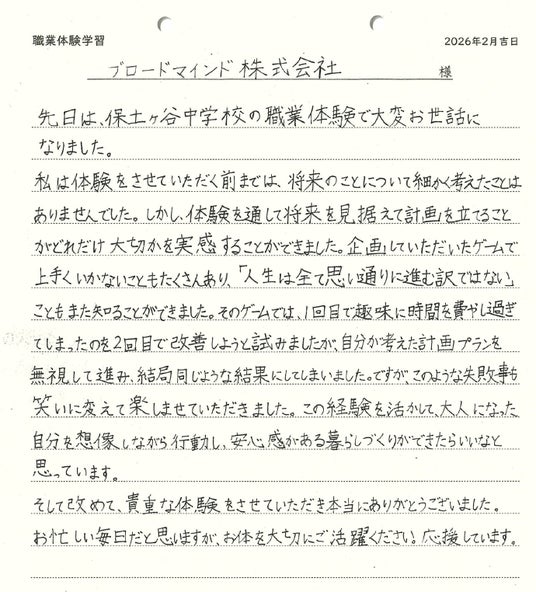 職業体験学習
2026年2月吉日
ブロードマインド株式会社 様
先日は、保土ヶ谷中学校の職業体験で大変お世話に
なりました。
私は体験をさせていただく前までは、将来のことについて細かく考えたことは
ありませんでした。しかし、体験を通して将来を見据えて計画を立てること
がどれだけ大切かを実感することができました。企画していただいたゲームで
上手くいかないこともたくさんあり、「人生は全て思い通りに進む訳ではない」
こともまた知ることができました。そのゲームでは、1回目で趣味に時間を費やし過ぎ
てしまったのを2回目で改善しようと試みましたが、自分が考えた計画プランを
無視して進み、結局同じような結果にしてしまいました。ですが、このような失敗事も
笑いに変えて楽しませていただきました。この経験を活かして、大人になった
自分を想像しながら行動し、安心感がある暮らしづくりができたらいいなと
思っています。
そして改めて、貴重な体験をさせていただき本当にありがとうございました。
お忙しい毎日だと思いますが、お体を大切にご活躍ください。応援しています。